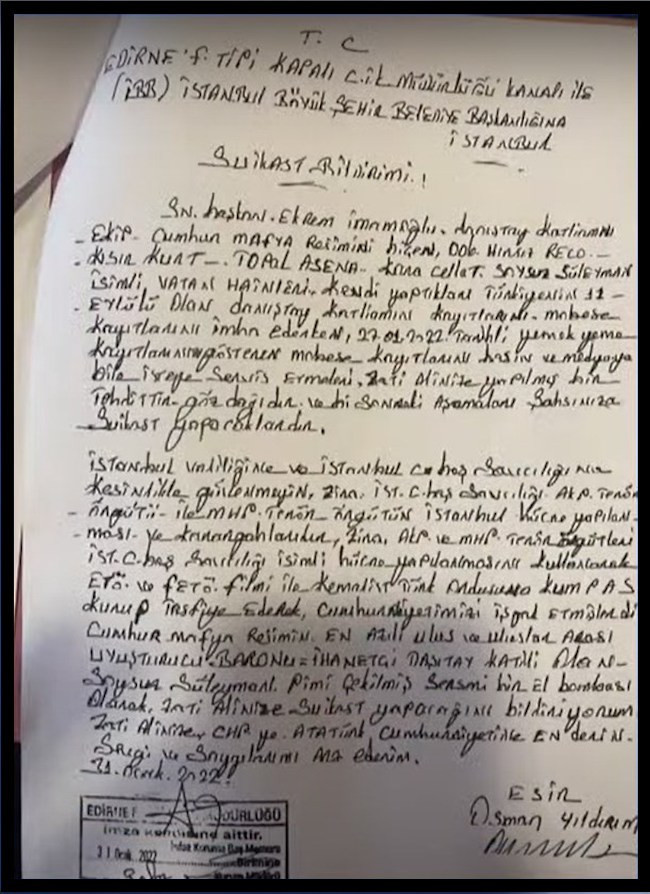 T. C
EDİRNE F. TİPİ KAPALI C.İK MÜDÜRLÜĞÜ KANALI İLE
(İBB) İSTANBUL BÜYÜK ŞEHİR BELEDİYE BAŞKANLIĞINA
İSTANBUL
Suikast Bildirimi.!
Sn. başkan. Ekrem İmamoğlu. danıştay katliamını
- Cumhur MAFYA REJİMİNİ
- KISIR KURT-. TOPAL ASENA- kara cellat. Soysuz SÜLEYMAN
İsimli, VATAN HAİNLERİ. kendi yaptıkları Türkiyenin 11-
- EYLÜLÜ Olan danıştay katliamını kayıtlarını- mobese
kayıtlarını imha ederken, 27.01.2022. Tarihli yemek yeme
kayıtlarını gösteren mobese kayıtlarını basın ve medyaya
bile isteye Servis Etmeleri, Zati Alinize yapılmış bir
Tehdittir- göz dağıdır. ve bi Sonraki Aşamaları Şahsınıza
Suikast yapacaklardır.
İSTANBUL valiliğine ve İSTANBUL C.baş Savcılığına
kesinlikle güvenmeyin, zira, İST. C.baş Savcılığı. AKP. Terör
- örgütü- ile MHP. Terör örgütün İSTANBUL hücre yapılan-
ması- ve karargahlarıdır, zira, AKP ve MHP. Terör örgütleri
İST. C.baş Savcılığı isimli hücre yapılanmasını kullanarak
ETÖ. ve FETÖ. filmi ile Kemalist Türk Ordusuna KUMPAS
kurup Tasfiye Ederek, Cumhuriyetimizi işgal ETMİŞLERDİ
Cumhur mafya Rejimin. EN Azılı ulus ve uluslar Arası
UYUŞTURUCU- BARONU= İHANETÇİ KATİLİ Olan-
Soysuz Süleyman. Pimi Çekilmiş Serseri bir El bombası
Olarak, Zati Alinize Suikast yapacağını bildiriyorum
Zati Alinize, CHP ye. ATATÜRK Cumhuriyetine EN derin-
Sevgi ve Saygılarımı Arz ederim.
31. Ocak. 2022.
ESİR
Osman YILDIRIM
EDİRNE F MÜDÜRLÜĞÜ
imza kendisine aittir.
31 Ocak 2022
İnfaz Koruma Baş Memuru